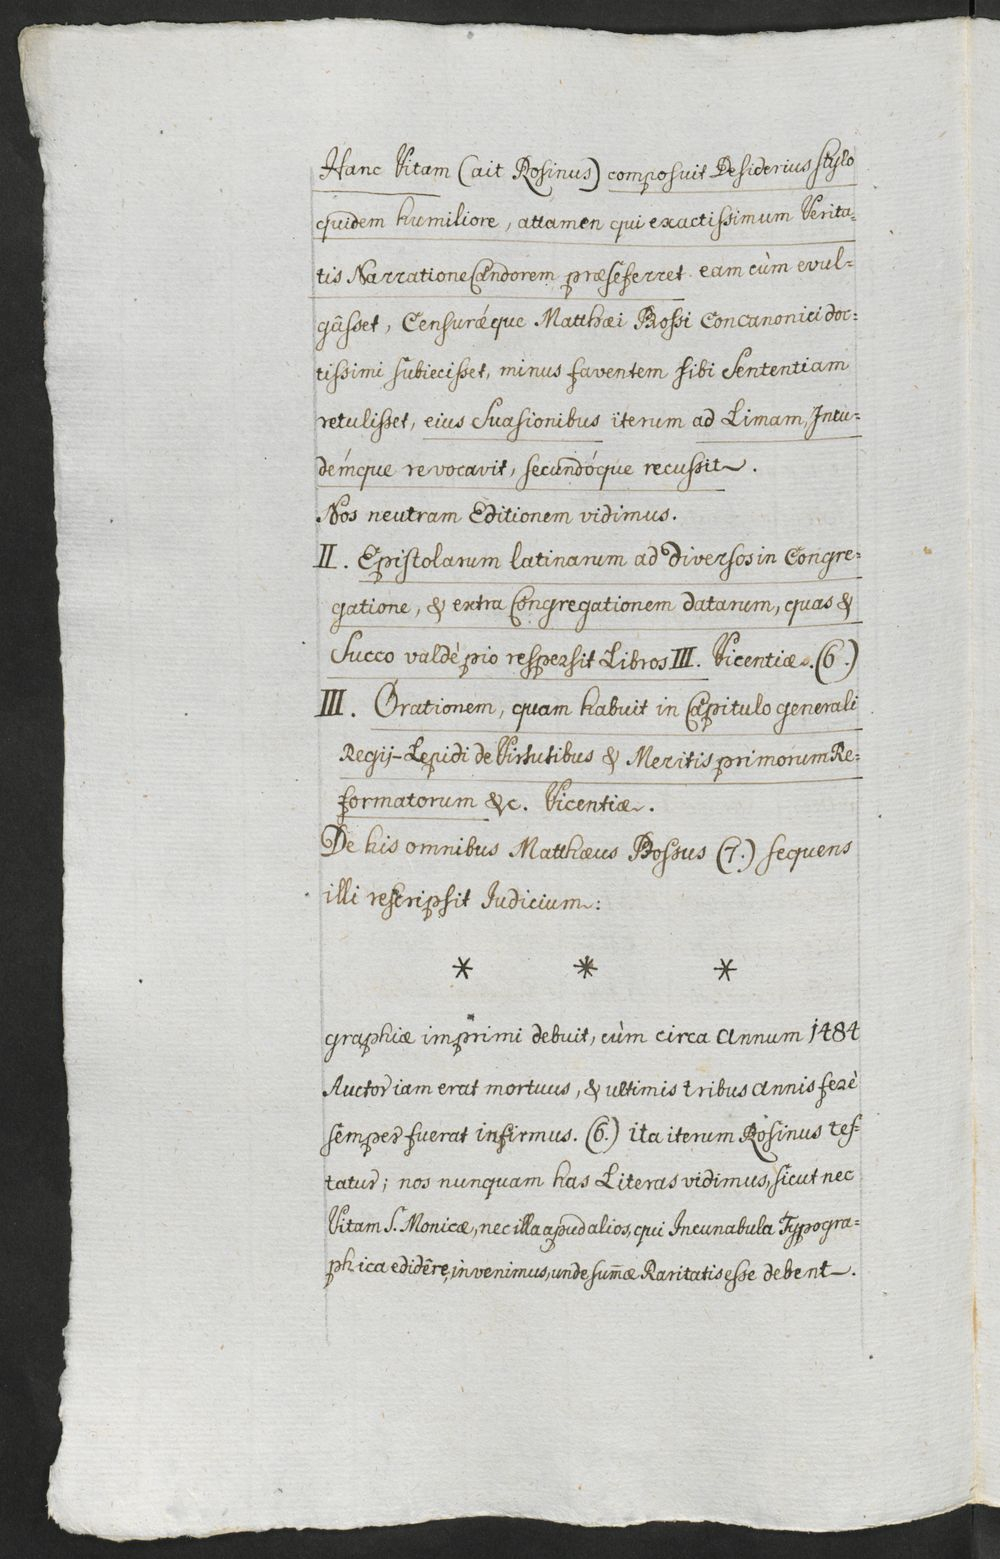 Hanc Vitam (ait Rosinus) composuit Desiderius stylo
quidem humiliore, attamen qui exactissimum Verita=
tis Narratione Candorem præseferret. eam cùm evul=
gâsset, Censurǽque Matthæi Bossi Concanonici doc=
tissimi subiecisset, minus faventem sibi Sententiam
retulisset, eius Suasionibus iterum ad Limam, Incu=
démque revocavit, secundóque recussit.
Nos neutram Editionem vidimus.
II. Epistolarum latinarum ad diversos in Congre=
gatione, & extra Congregationem datarum, quas &
Succo valdè pio respersit Libros III. Vicentiæ. (6.)
III. Orationem, quam habuit in Capitulo generali
Regij-Lepidi de Virtutibus & Meritis primorum Re=
formatorum &c. Vicentiæ.
De his omnibus Matthæus Bossus (7.) sequens
illi rescripsit Judicium:
* * *
graphiæ imprimi debuit, cùm circa Annum 1484
Auctor iam erat mortuus, & ultimis tribus annis ferè
semper fuerat infirmus. (6.) ita iterum Rosinus tes-
tatur; nos nunquam has Literas vidimus, sicut nec
Vitam S. Monicæ, nec illa apud alios, qui Incunabula Typogra=
phica edidêre, invenimus, unde sum̄æ Raritatis esse debent.